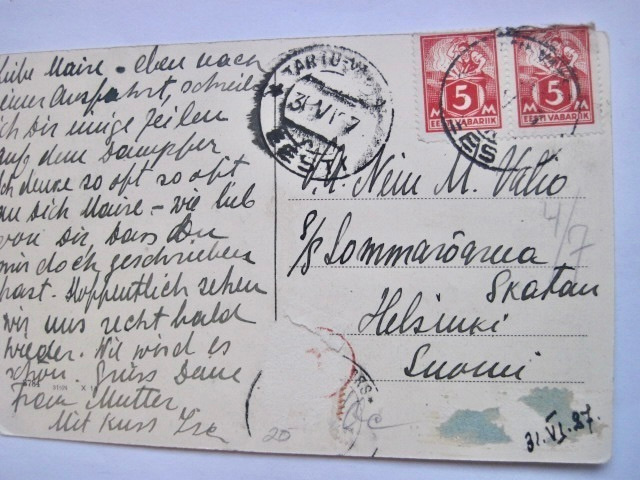 Liebe Maire - eben nach
einer Ausfahrt, schreibe
ich Dir einige Zeilen
auf dem Dampfer
Ich denke so oft so oft
an Dich Maire - wie lieb
von Dir, dass Du
mir doch geschrieben
hast. Hoffentlich sehen
wir uns recht bald
wieder. Wie wird es
schön. Grüss Deine
Frau Mutter
Mit Kuss
TARTU
31 VI 27
EESTI
5
M M
EESTI VABARIIK
5
M M
EESTI VABARIIK
Neiu M. Valio
4/7
Sommaröarna
Skatan
Helsinki
Suomi
20
31. VI. 27.